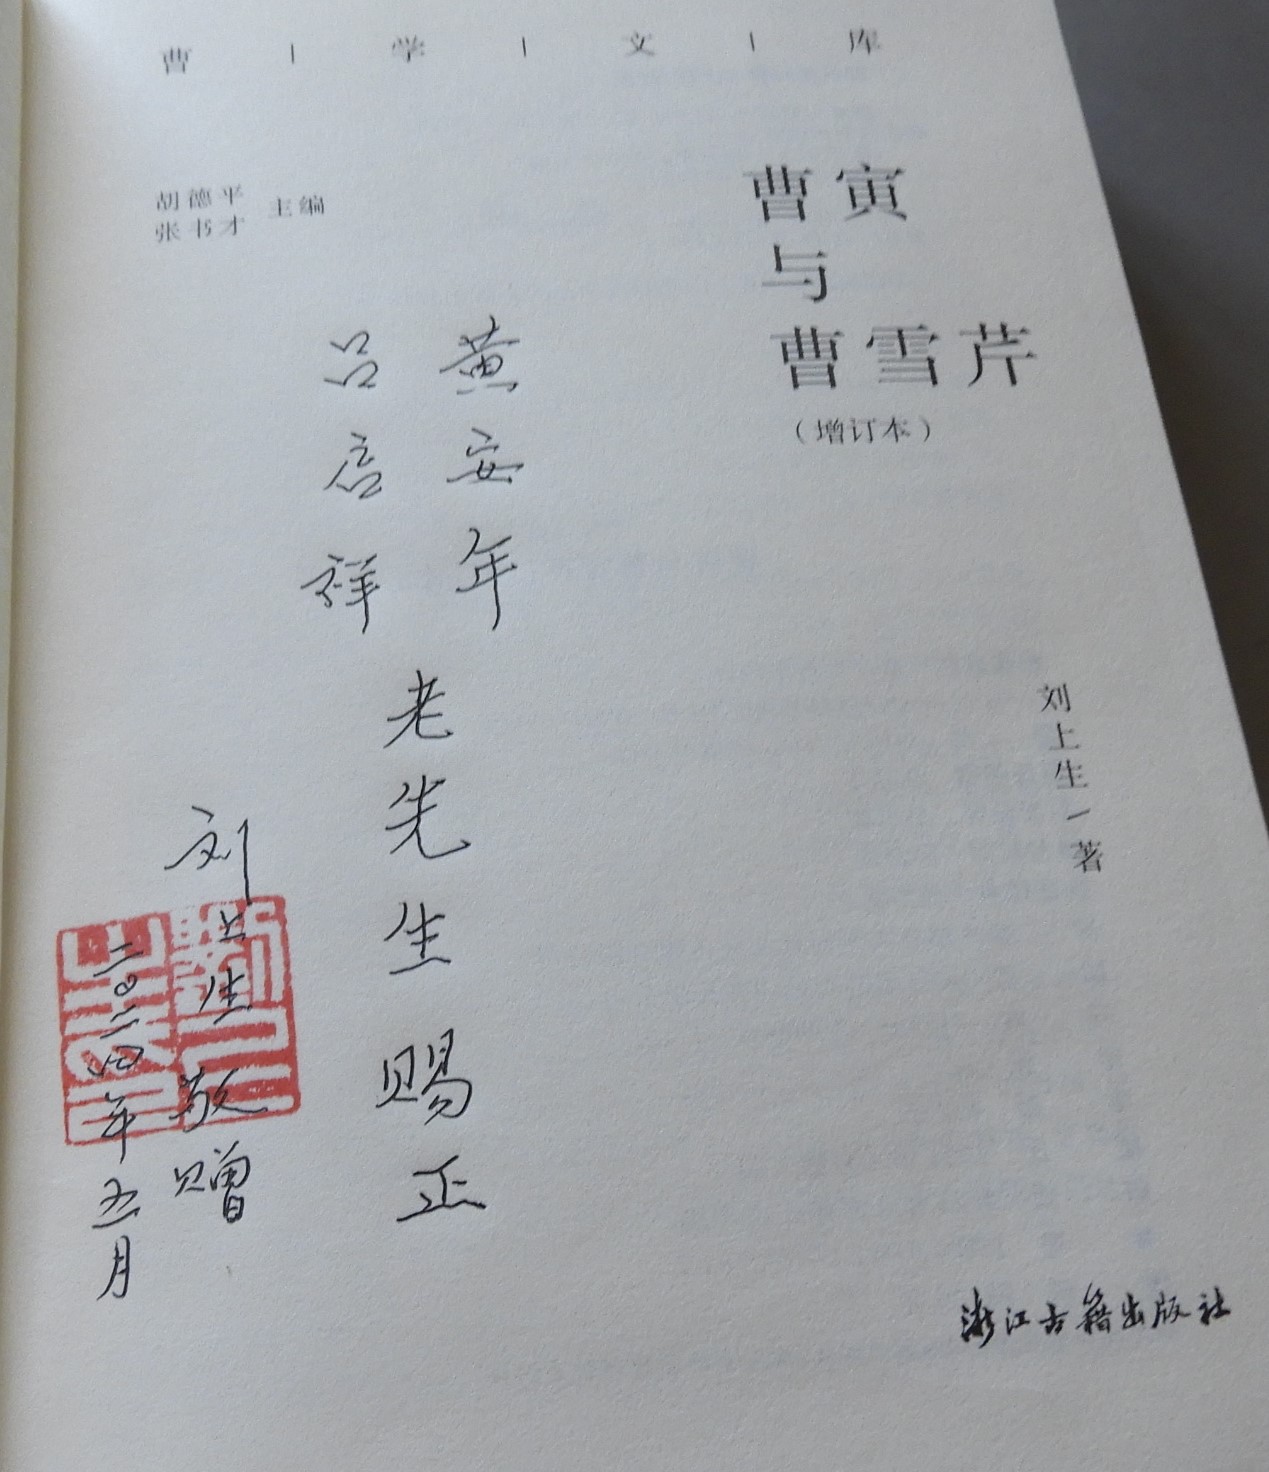 曹|学|文|库
胡德平
张书才
主编
曹寅
与
曹雪芹
（增订本）
刘上生/著
黄安年
吕启祥
老先生赐正
刘上生敬赠
二〇二四年五月
浙江古籍出版社